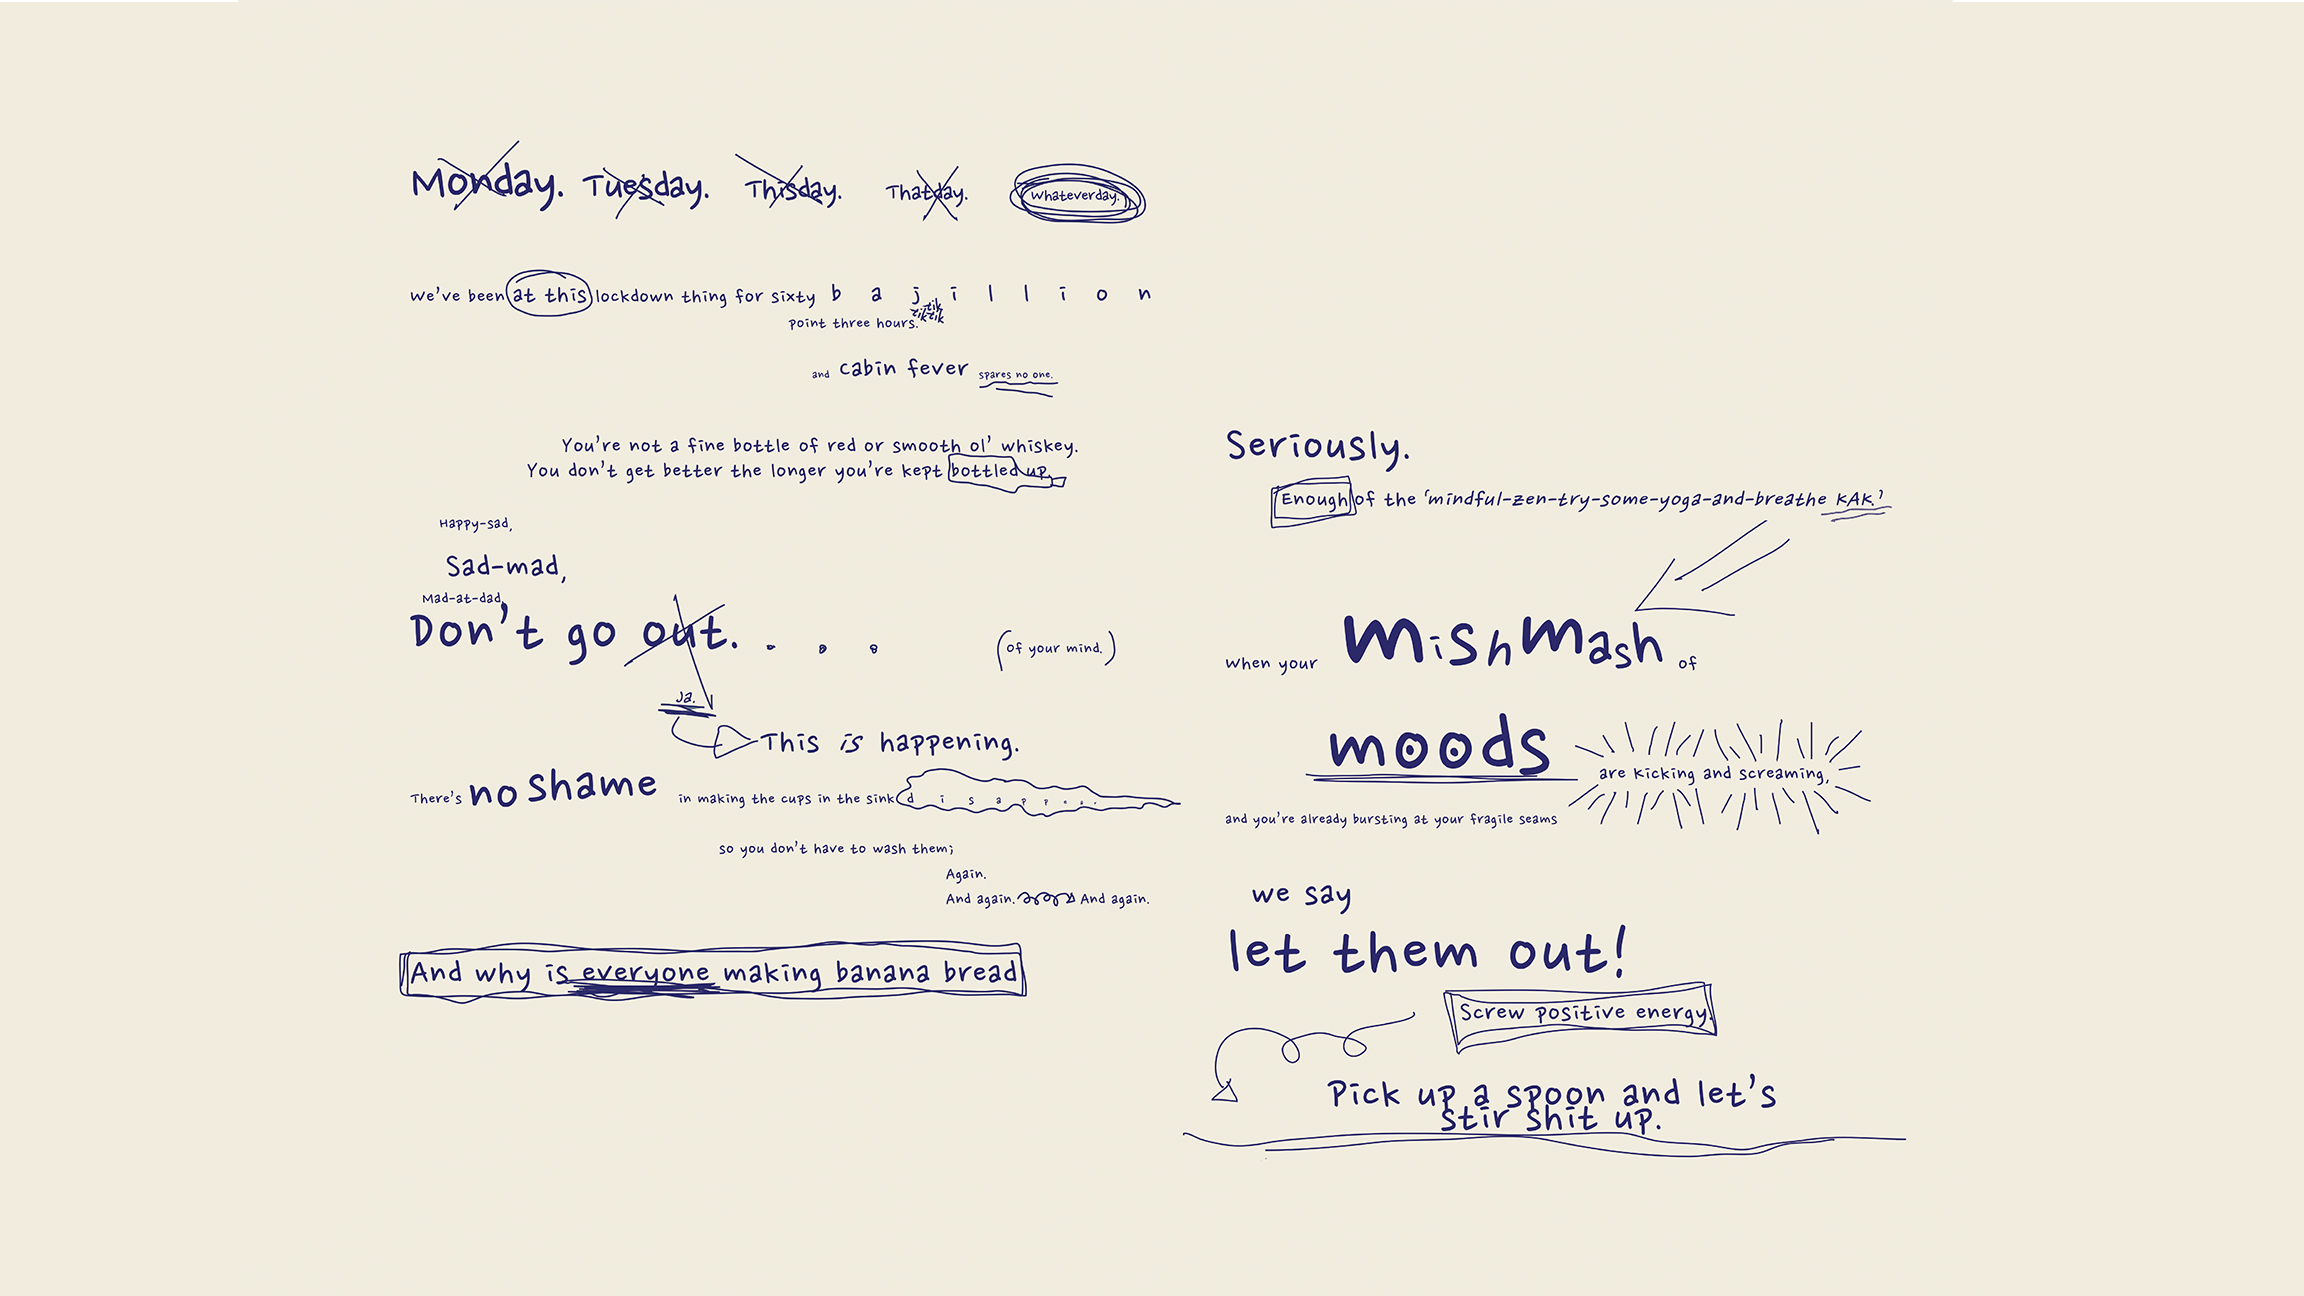 Monday. Tuesday. Thisday. Thatday. Whateverday.
We've been at this lockdown thing for sixty b a j i l l i o n
tik tik tik
point three hours.
and cabin fever spares no one.
You're not a fine bottle of red or smooth ol' whiskey.
You don't get better the longer you're kept bottled up.
Happy-sad,
Sad-mad,
Mad-at-dad,
Don't go out. . . . (of your mind.)
Ja.
This is happening.
There's no shame in making the cups in the sink d i s a p p e a r
so you don't have to wash them;
Again.
And again. And again.
And why is everyone making banana bread
Seriously.
Enough of the 'mindful-zen-try-some-yoga-and-breathe KAK.'
When your mishmash of
moods are kicking and screaming,
and you're already bursting at your fragile seams
we say
let them out!
Screw positive energy.
Pick up a spoon and let's
stir shit up.